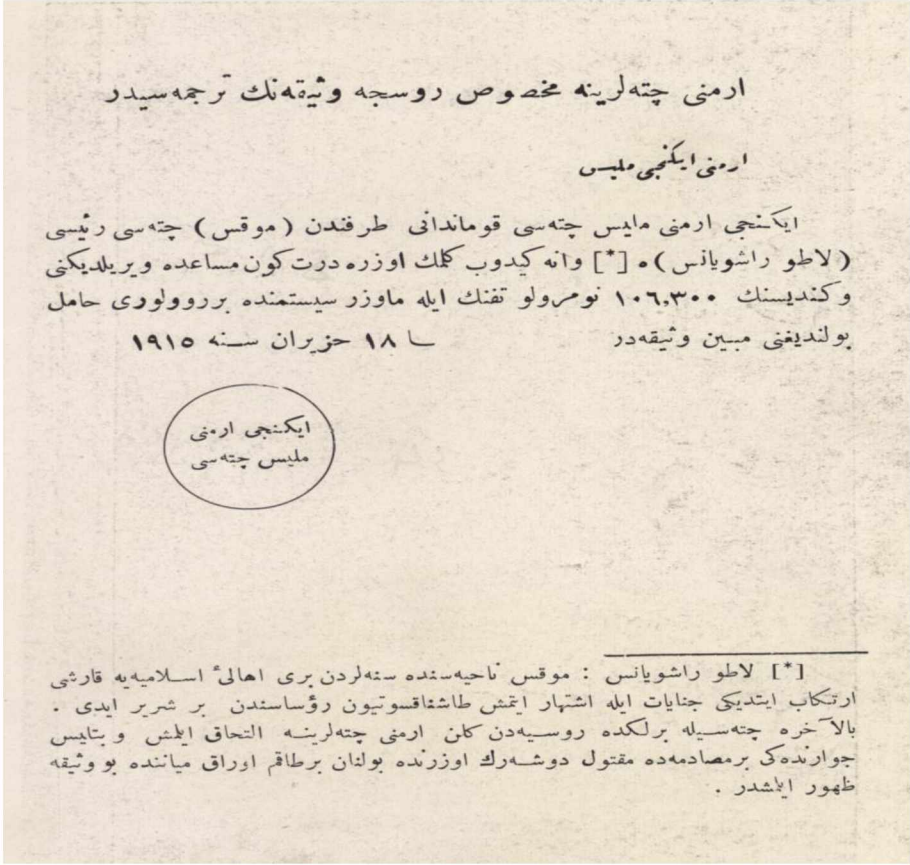 ارمنی چته‌لرینه مخصوص روسجه وثیقه‌نك ترجمه‌سیدر
ارمنی ایكنجی ملیس
ایكنجی ارمنی مایس چته‌سی قوماندانی طرفندن ( موقس ) چته‌سی رئیسی
( لاطو راشویانس ) ه [*] وانه كیدوب كلمك اوزره درت كون مساعده ویریلدیكنی
وكندیسنك ١٠٦,٣٠٠ نومرولو تفنك ایله ماوزر سیستمنده بر روولوری حامل
بولندیغنی مبین وثیقه‌در ١٨ حزیران سنه ١٩١٥
ایكنجی ارمنی
ملیس چته‌سی
[*] لاطو راشویانس : موقس ناحیه‌سنده سنه‌لردن بری اهالیٔ اسلامیه‌یه قارشی
ارتكاب ایتدیكی جنایات ایله اشتهار ایتمش طاشناقسوتیون رؤساسندن بر شریر ایدی .
بالآخره چته‌سیله برلكده روسیه‌دن كلن ارمنی چته‌لرینه التحاق ایلمش و بتلیس
جوارنده‌كی برمصادمه‌ده مقتول دوشه‌رك اوزرنده بولنان برطاقم اوراق میاننده بو وثیقه
ظهور ایلمشدر .